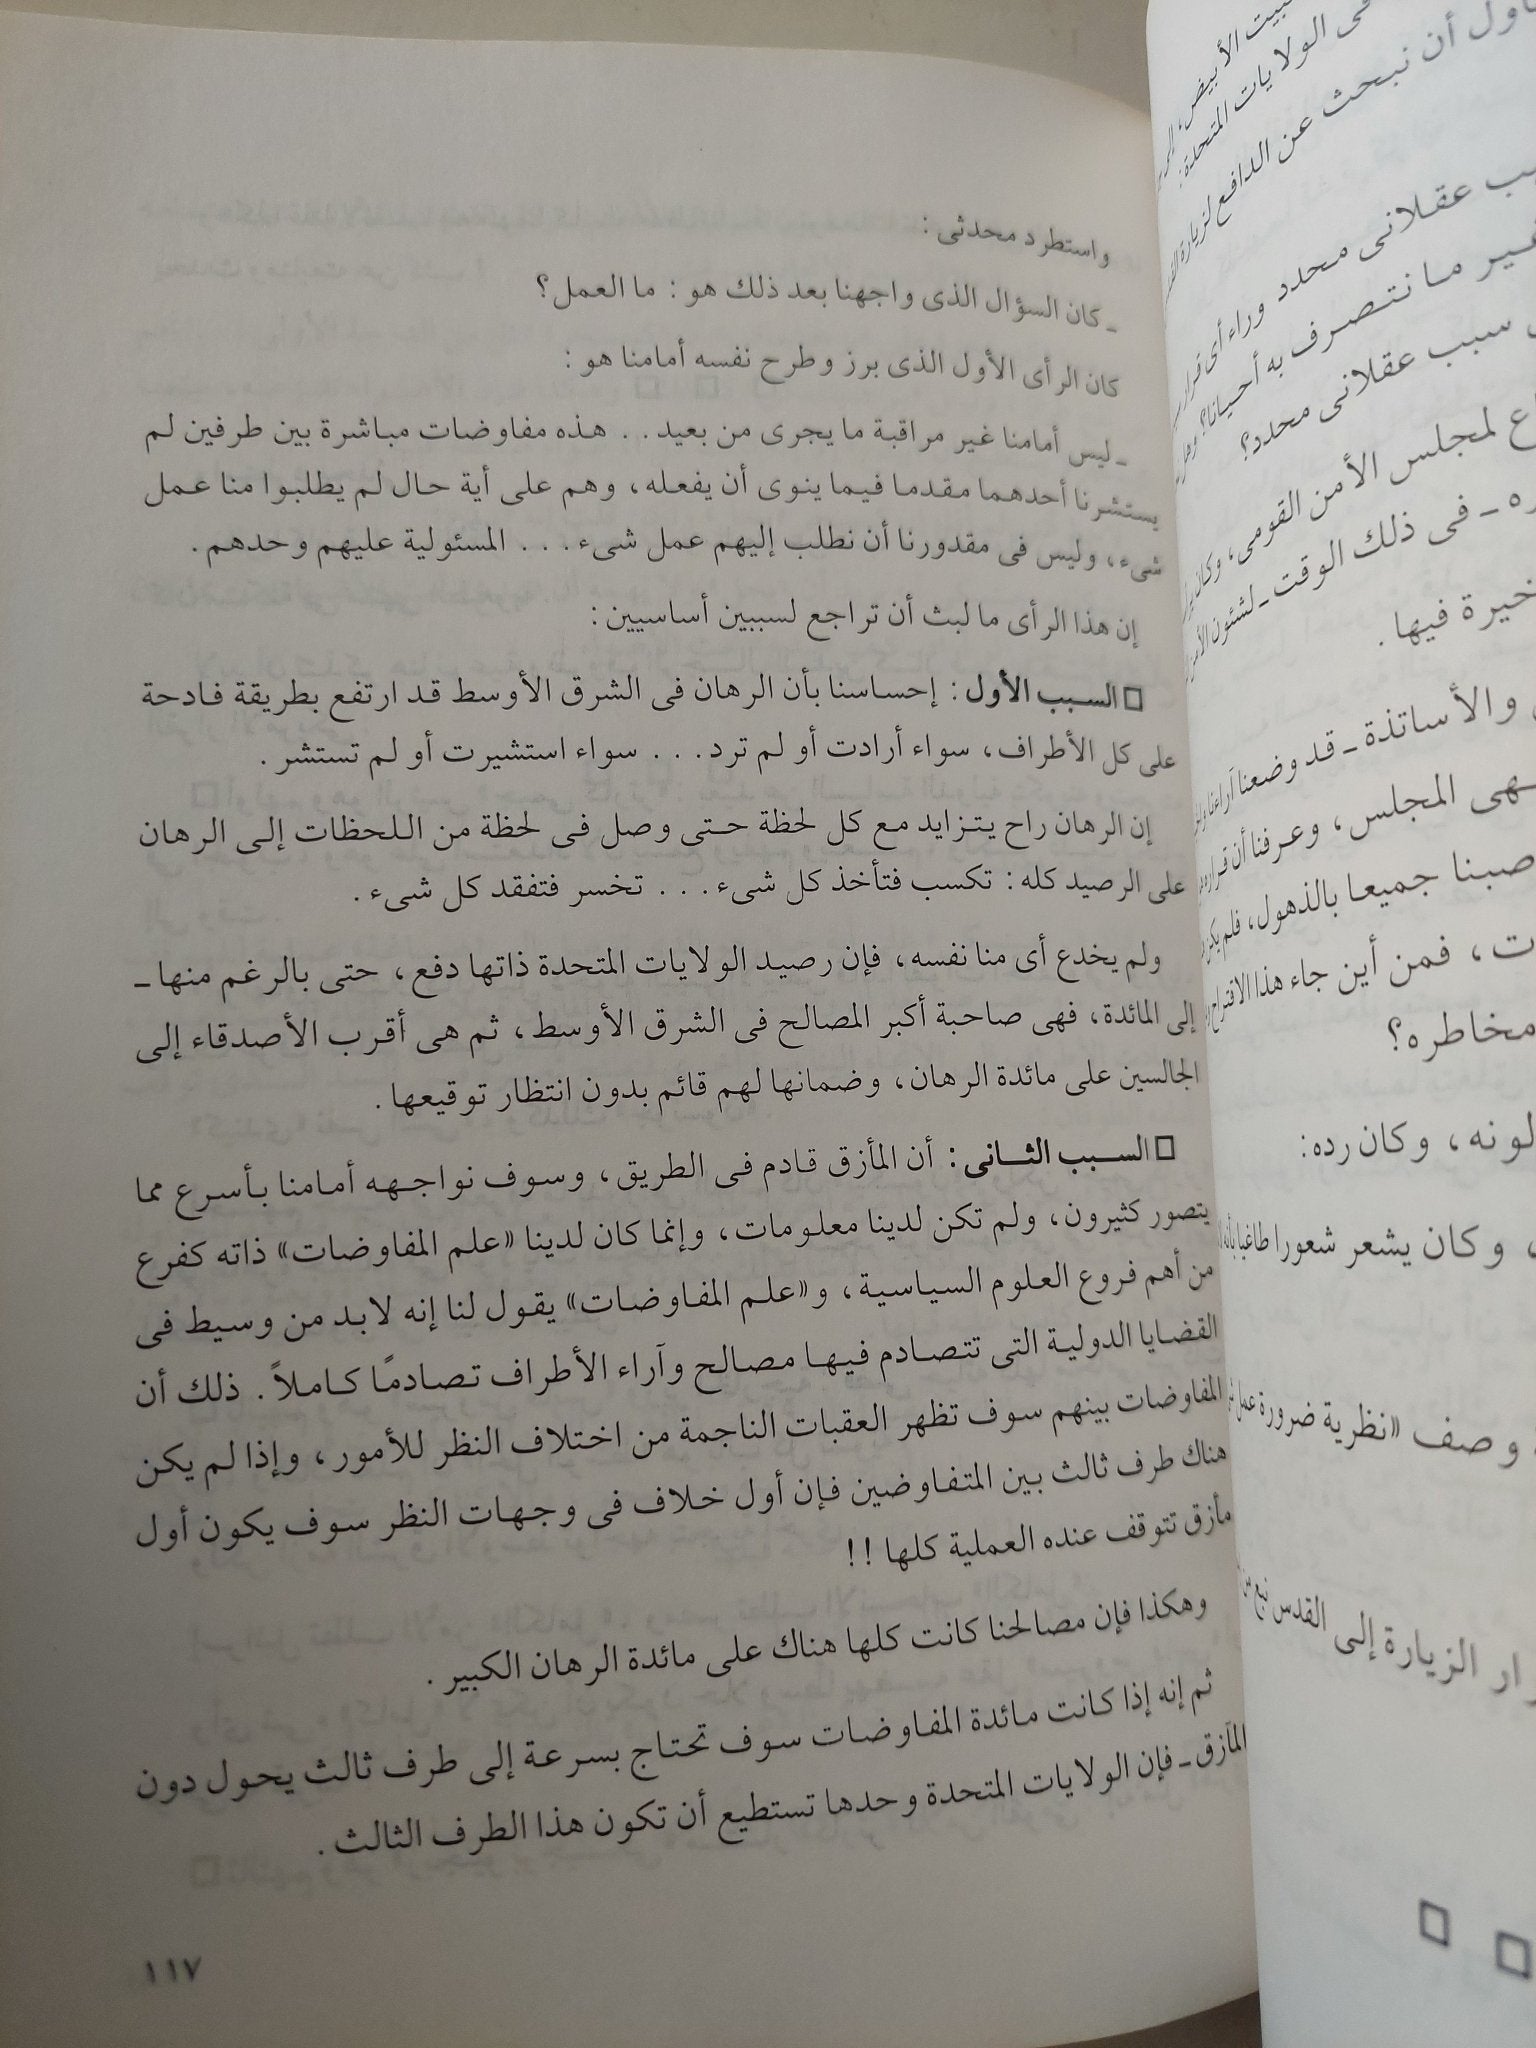 بيت الأبيض، إلى
فى الولايات المتحدة:
أن نبحث عن الدافع لزيارة
عقلانى محدد وراء أى قرار
ما نتصرف به أحيانا؟ وهل
سبب عقلانى محدد؟
لمجلس الأمن القومى، وكان
ـ فى ذلك الوقت ـ لشئون
خيرة فيها.
والأساتذة ـ قد وضعنا آراءنا
المجلس، وعرفنا أن
جميعا بالذهول، فلم يكن
فمن أين جاء هذا الاقتراح
مخاطره؟
وكان رده:
، وكان يشعر شعورا طاغيا بأنه
وصف «نظرية ضرورة عمل
الزيارة إلى القدس نبع من
واستطرد محدثى :
ـ كان السؤال الذى واجهنا بعد ذلك هو : ما العمل؟
كان الرأى الأول الذى برز وطرح نفسه أمامنا هو :
ـ ليس أمامنا غير مراقبة ما يجرى من بعيد. . هذه مفاوضات مباشرة بين طرفين لم
يستشرنا أحدهما مقدما فيما ينوى أن يفعله، وهم على أية حال لم يطلبوا منا عمل
شىء، وليس فى مقدورنا أن نطلب إليهم عمل شىء. . . المسئولية عليهم وحدهم.
إن هذا الرأى ما لبث أن تراجع لسببين أساسيين:
□ السبب الأول : إحساسنا بأن الرهان فى الشرق الأوسط قد ارتفع بطريقة فادحة
على كل الأطراف، سواء أرادت أو لم ترد. . . سواء استشيرت أو لم تستشر.
إن الرهان راح يتزايد مع كل لحظة حتى وصل فى لحظة من اللحظات إلى الرهان
على الرصيد كله: تكسب فتأخذ كل شىء. . . تخسر فتفقد كل شىء.
ولم يخدع أى منا نفسه، فإن رصيد الولايات المتحدة ذاتها دفع، حتى بالرغم منها ـ
إلى المائدة، فهى صاحبة أكبر المصالح فى الشرق الأوسط، ثم هى أقرب الأصدقاء إلى
الجالسين على مائدة الرهان، وضمانها لهم قائم بدون انتظار توقيعها.
□ السبب الثانى: أن المأزق قادم فى الطريق، وسوف نواجهه أمامنا بأسرع مما
يتصور كثيرون، ولم تكن لدينا معلومات، وإنما كان لدينا «علم المفاوضات» ذاته كفرع
من أهم فروع العلوم السياسية، و«علم المفاوضات» يقول لنا إنه لابد من وسيط فى
القضايا الدولية التى تتصادم فيها مصالح وآراء الأطراف تصادمًا كاملاً. ذلك أن
المفاوضات بينهم سوف تظهر العقبات الناجمة من اختلاف النظر للأمور، وإذا لم يكن
هناك طرف ثالث بين المتفاوضين فإن أول خلاف فى وجهات النظر سوف يكون أول
مأزق تتوقف عنده العملية كلها !!
وهكذا فإن مصالحنا كانت كلها هناك على مائدة الرهان الكبير.
ثم إنه إذا كانت مائدة المفاوضات سوف تحتاج بسرعة إلى طرف ثالث يحول دون
المآزق ـ فإن الولايات المتحدة وحدها تستطيع أن تكون هذا الطرف الثالث.
١١٧